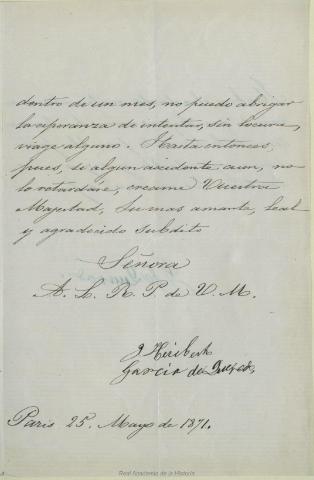 dentro de un mes, no puedo abrigar
la esperanza de intentar, sin locura,
viage alguno. Hasta entonces,
pues, si algun accidente, aun, no
lo retardare, creame Vuestra
Magestad, su mas amante, leal
y agradecido subdito
Señora
A. L. R. P. de V. M.
J Heriberto
Garcia de Quevedo
Paris 25. Mayo de 1871.
Real Academia de la Historia